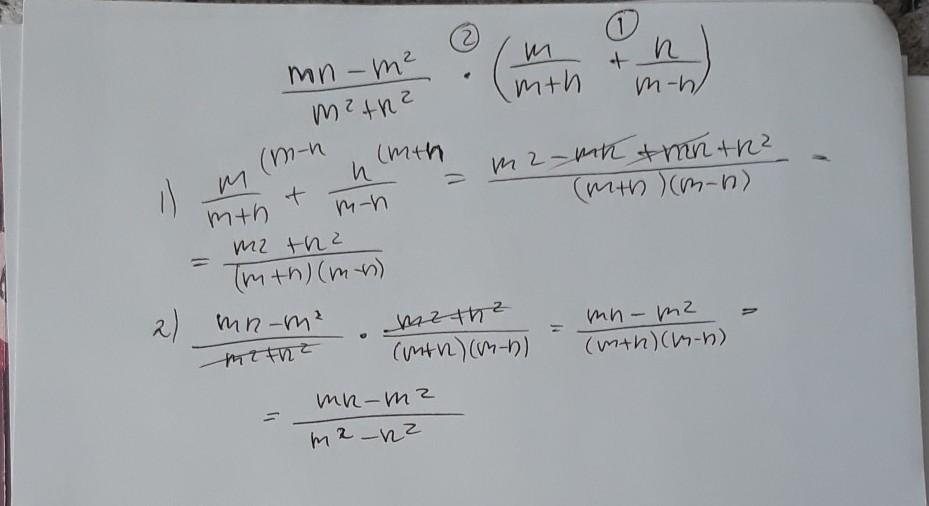 ② ①
(mn - m²)/(m² + n²) · (m/(m+n) + n/(m-n))
1) m/(m+n) (m-n + n/(m-n) (m+n = (m² - mn + mn + n²)/((m+n)(m-n)) =
= (m2 + n2)/((m+n)(m-n))
2) (mn - m²)/(m² + n²) · (m² + n²)/((m+n)(m-n)) = (mn - m²)/((m+n)(m-n)) =
= (mn - m²)/(m² - n²)